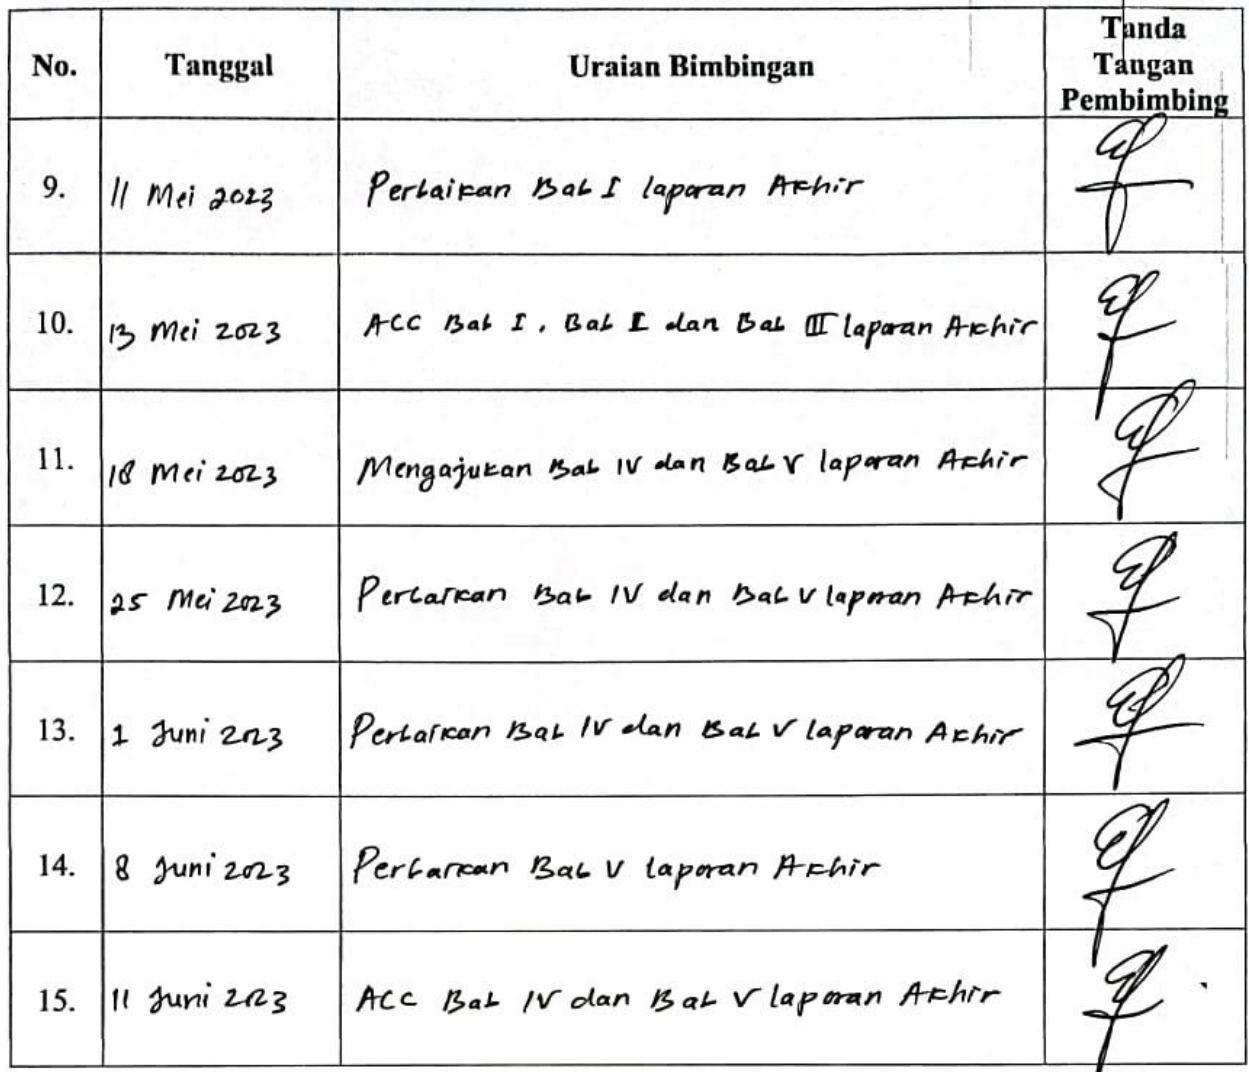 No. Tanggal Uraian Bimbingan Tanda
Tangan
Pembimbing
9. 11 Mei 2023 Perbaikan Bab I laporan Akhir
10. 13 Mei 2023 ACC Bab I, Bab II dan Bab III laporan Akhir
11. 18 Mei 2023 Mengajukan Bab IV dan Bab V laporan Akhir
12. 25 Mei 2023 Perbaikan Bab IV dan Bab V laporan Akhir
13. 1 Juni 2023 Perbaikan Bab IV dan Bab V laporan Akhir
14. 8 Juni 2023 Perbaikan Bab V laporan Akhir
15. 11 Juni 2023 ACC Bab IV dan Bab V laporan Akhir